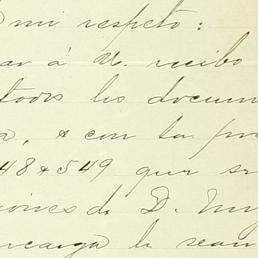 mi respeto:
ar á V. recibo
todos los docum
a, & con la pr
48 & 549 que se
iones de D.
ncarga le sean